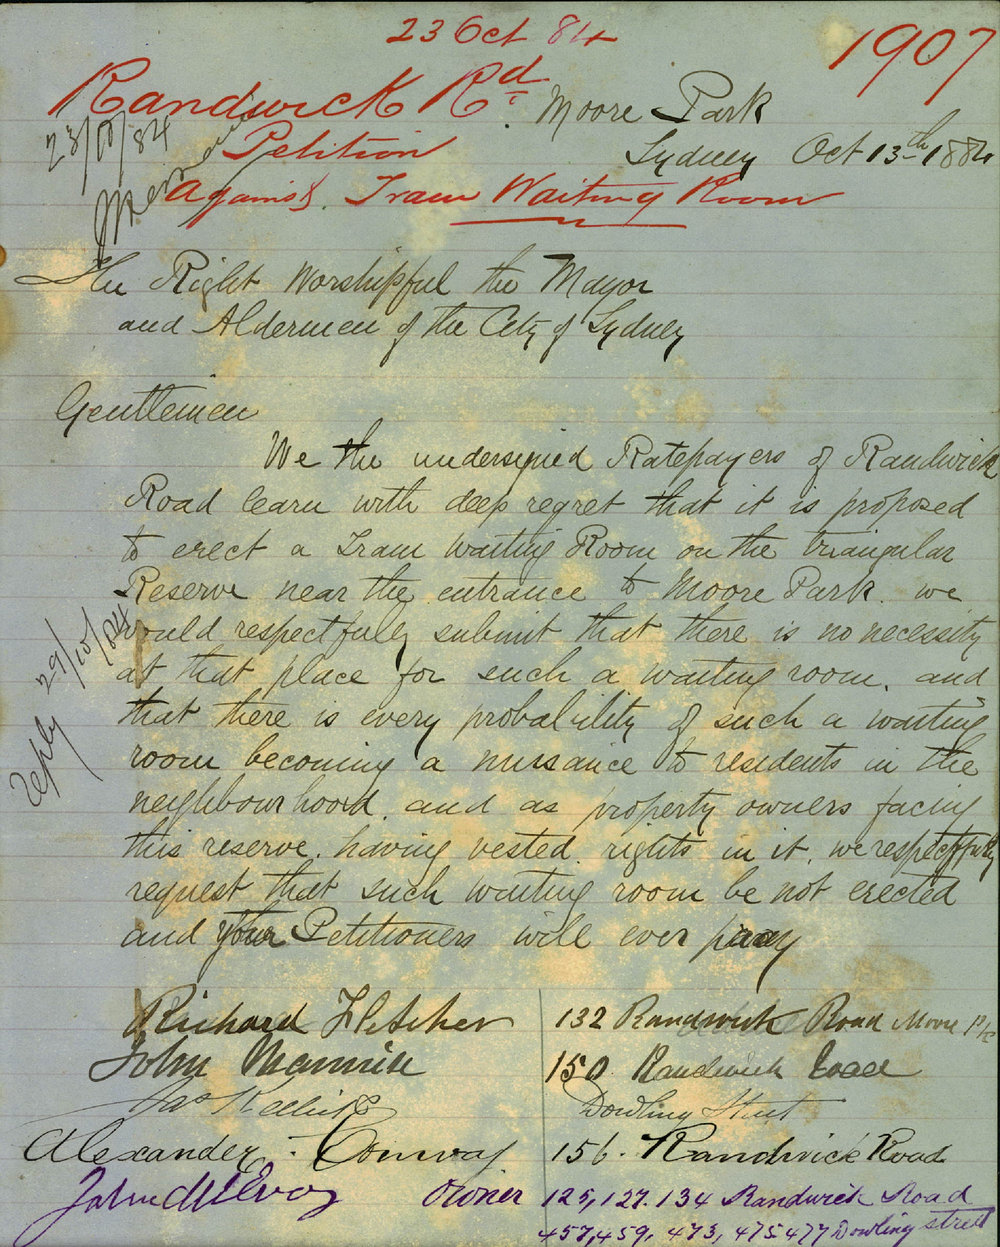 23 Oct 84
1907
Randwick Rd
Petition
Against Tram Waiting Room
23/10/84
Moore Park
Sydney Oct 13th 1884
The Right Worshipful the Mayor
and Aldermen of the City of Sydney
Gentlemen
We the undersigned Ratepayers of Randwick
Road learn with deep regret that it is proposed
to erect a Tram Waiting Room on the triangular
Reserve near the entrance to Moore Park. we
would respectfully submit that there is no necessity
at that place for such a waiting room. and
that there is every probability of such a waiting
room becoming a nuisance to residents in the
neighbourhood. and as property owners facing
this reserve, having vested rights in it, we respectfully
request that such waiting room be not erected
and your Petitioners will ever pray
Reply 29/10/84
Richard Fletcher 132 Randwick Road Moore Pk
John 150 Randwick Road
Jas Dowling Street
Alexander Conway 156. Randwick Road
John McEvoy owner 125, 127. 134 Randwick Road
457, 459, 473, 475 477 Dowling street